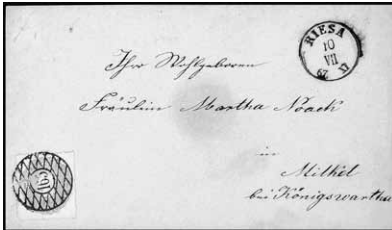 RIESA
10
VII
67
Ihro Wohlgeboren
Fräulein Martha Noack
in
Milkel
bei Königswartha